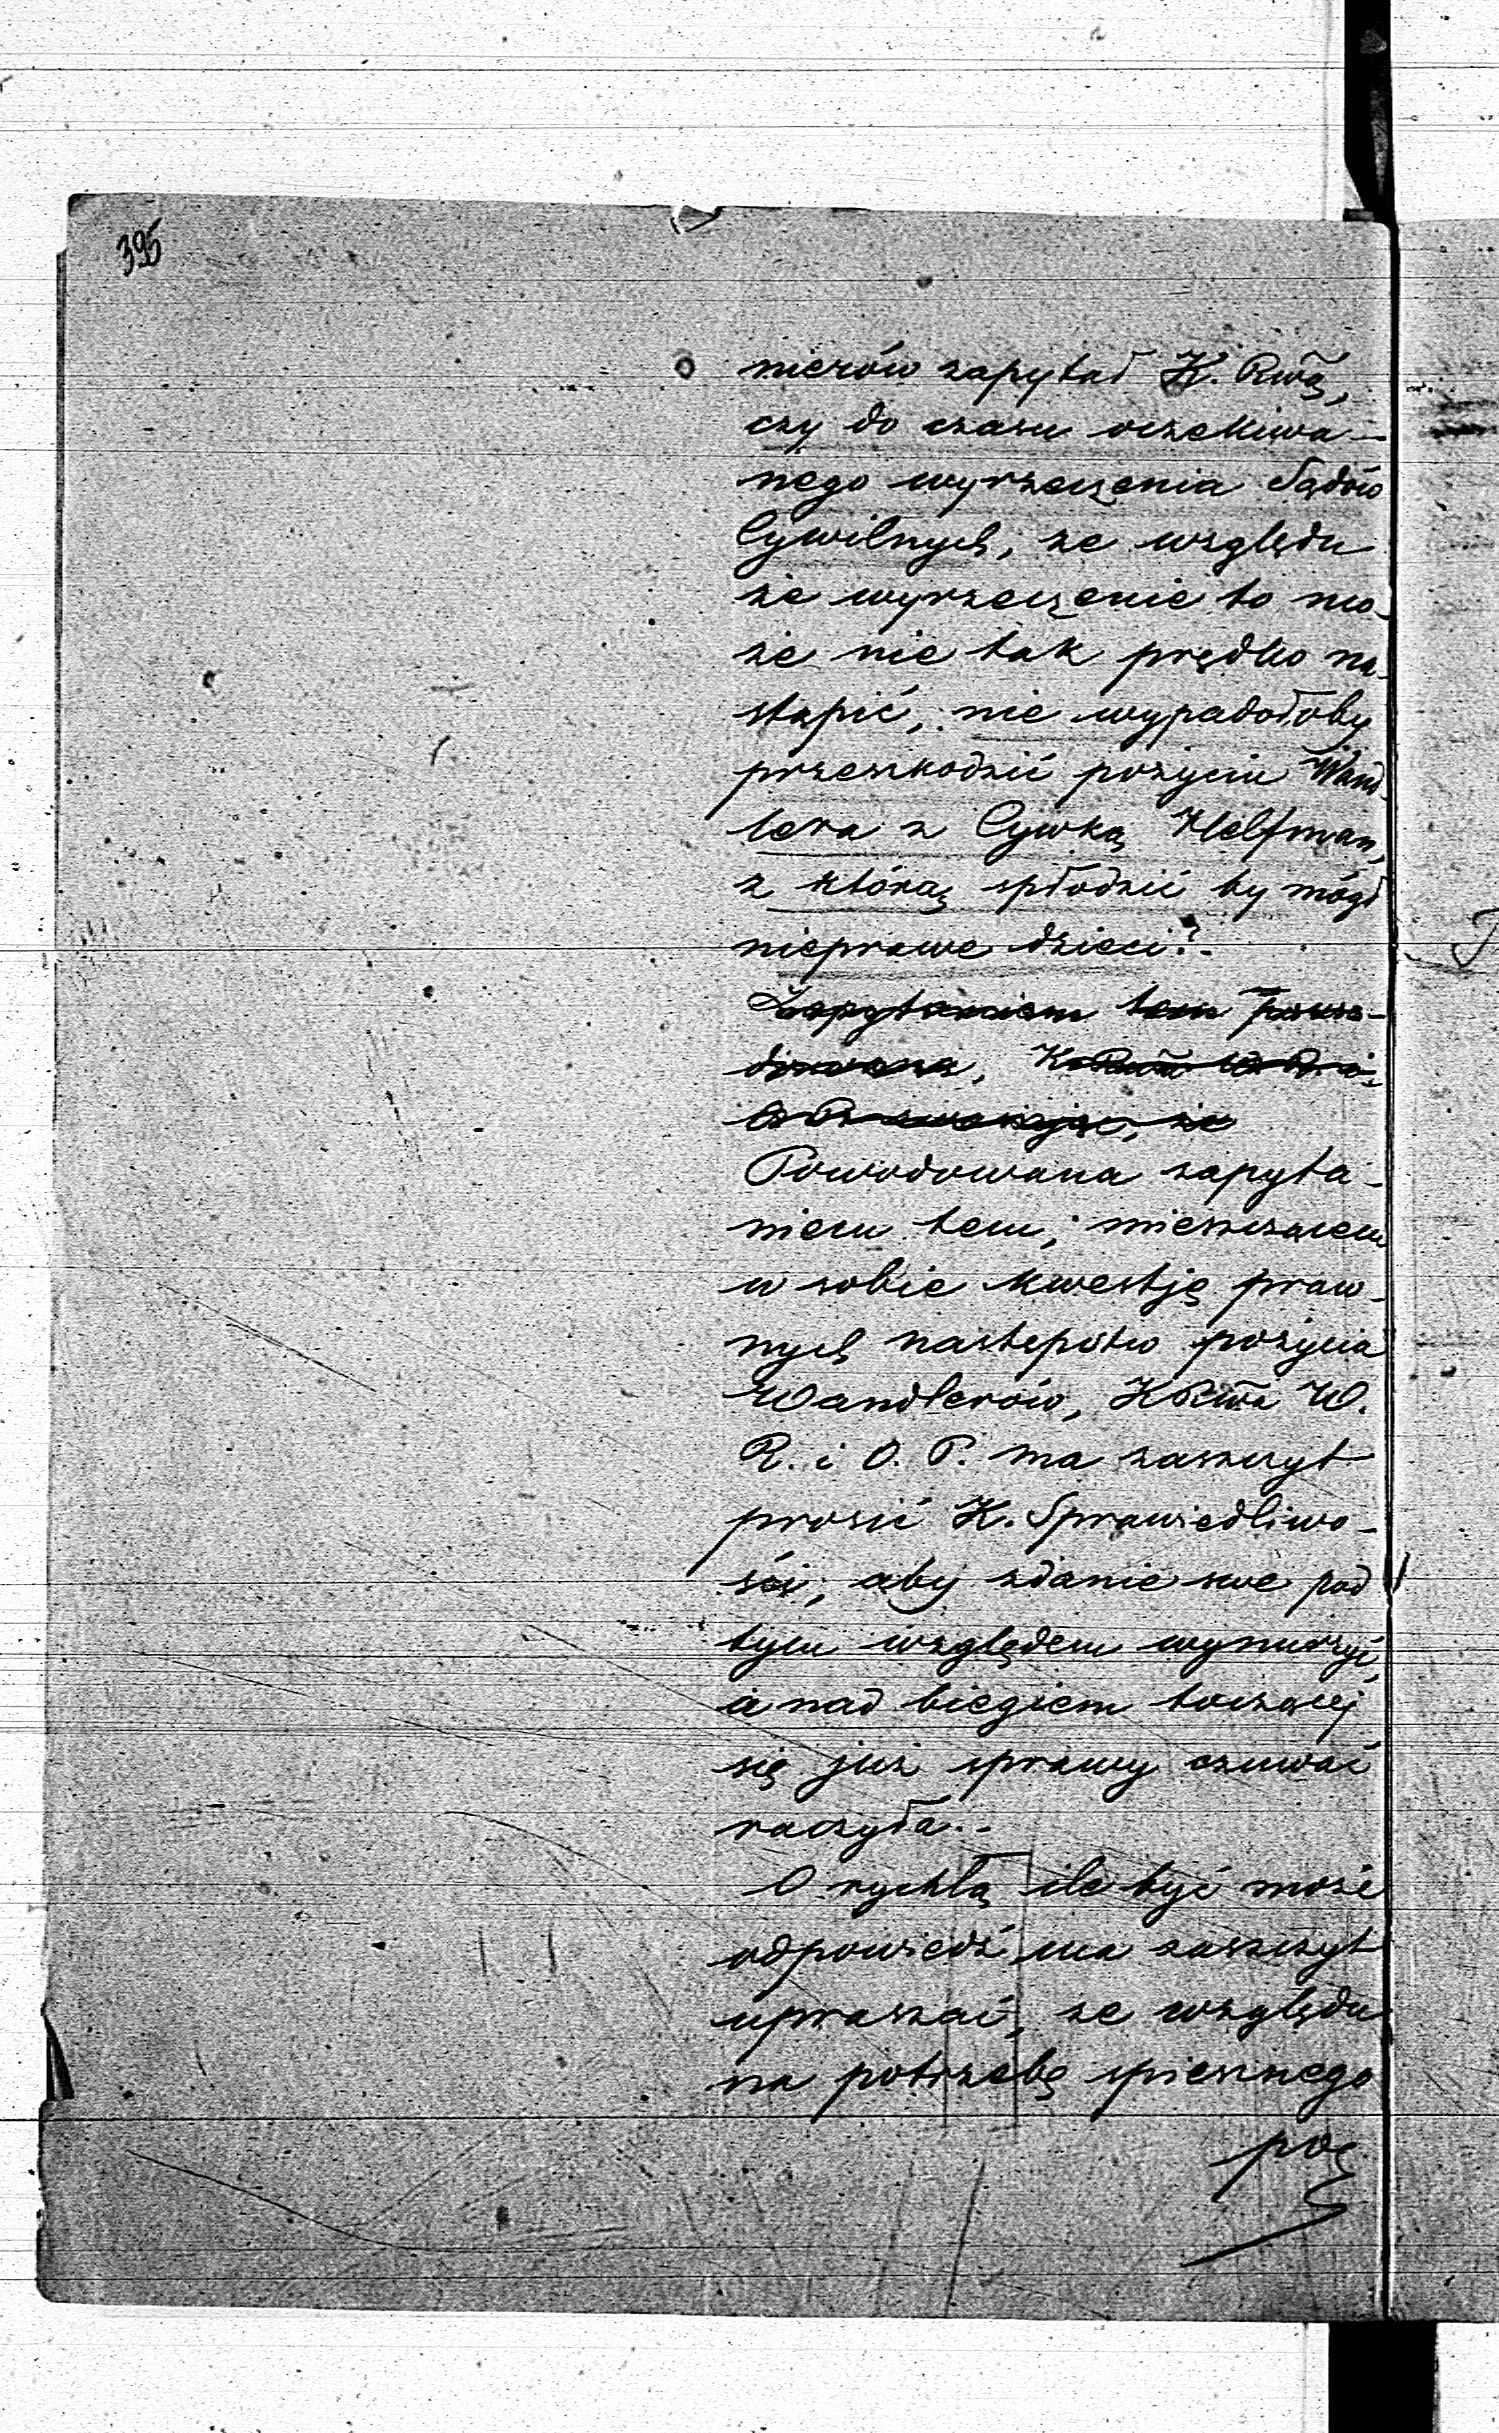 395
nierów zapytał K. Rwą,
czy do czasu oczekiwa-
nego wyrzeczenia Sądów
Cywilnych, ze względu
że wyrzeczenie to mo-
że nie tak prędko na-
stąpić, nie wypadałoby
przeszkodzić pożyciu Wand-
lera z Cywką Helfman,
z którą spłodzić by mógł
nieprawe dzieci?-
Zapytaniem tem powo-
dowana,
że
Powodowana zapyta-
niem tem, mieszczącem
w sobie kwestję praw-
nych następstw pożycia
Wandlerów, KRwa W.
R. i O. P. ma zaszczyt
prosić K. Sprawiedliwo-
ści, aby zdanie swe pod
tym względem wynurzyć,
a nad biegiem toczącej
się już sprawy czuwać
raczyła.-
O rychłą ile być może
odpowiedź ma zaszczyt
upraszać, ze względu
na potrzebę spiesznego